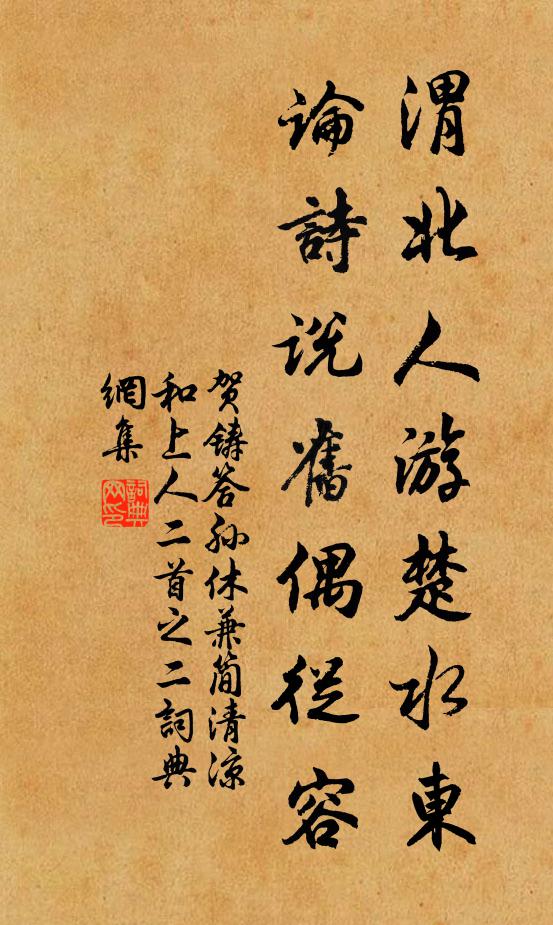 渭北人游楚水東
論詩説舊偶從容
贺鑄答孙休兼简清凉
和上人二首之二詞典
網集
詞典
网印